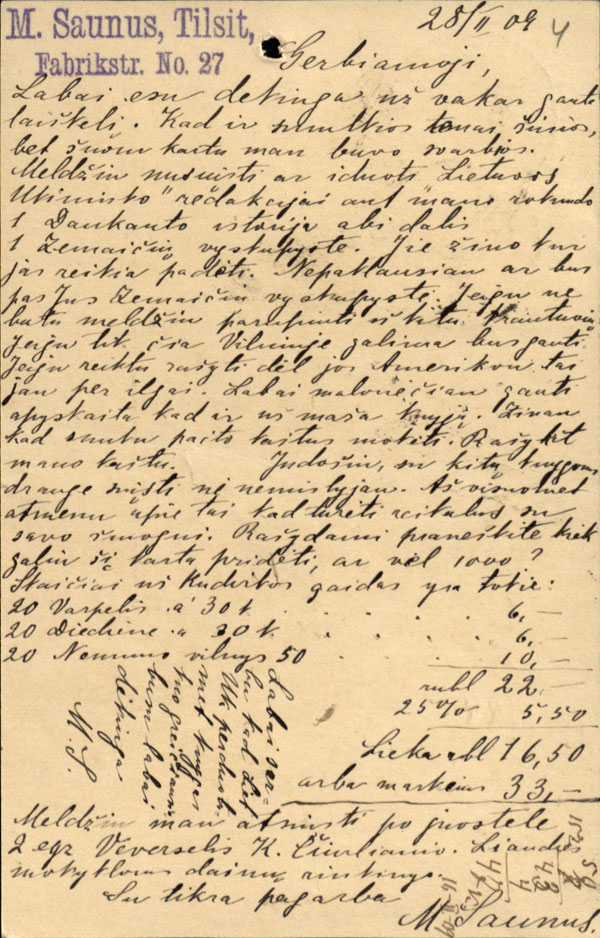 M. Saunus, Tilsit,
Fabrikstr. No. 27
28/II 09
4
Gerbiamoji,
Labai esu dėkinga už vakar gautą
laiškelį. Kad ir smulkios
bet šiuom kartu man buvo svarbios.
Meldžiu nusiusti ar iduoti „Lietuvos
Ukininko" redakcijai ant mano
1 Daukanto istorija abi dalis
1 Žemaičių vyskupyste. Jie žino kur
jas reikia padėti. Nepaklausiau ar bus
pas Jus Žemaičių vyskupystė. Jeigu ne
butu meldžiu parupinti iš kitu
Jeigu tik čia Vilniuje galima bus gauti.
Jeigu reiktu rašyti dėl jos Amerikon tai
jau per ilgai. Labai malonėčiau gauti
apyskaitą kad ir už maža knygą. Žinau
kad sunku pačto kaštus mokėti. Rašykit
mano kaštu. Judošiu, su kitų knygoms
drauge siųsti nė nemislyjau. Aš visuomet
atmenu apie tai kad turėti reikalus su
savo žmogui. Rašydami praneškite kiek
galiu šį kartą pridėti, ar vėl 1000?
Skaičiai už Kudirkos gaidas yra tokie:
20 Varpelis à 30 k. 6,—
20 Diedienė à 30 k. 6,—
20 Nemuno vilnys 50 10,—
rubl 22.—
25% 5,50
Lieka rbl 16,50
arba markėms 33,—
Labai
bu kad Liet
Uk perduoti
met knygas
kuo greičiausiai
busu labai
dėkinga
M. S.
Meldžiu man atsiusti po juostele
2 egz Veverselis K. Čiurlianio. Liaudies
mokykloms dainų rinkinys.
Su tikra pagarba
M. Saunus.